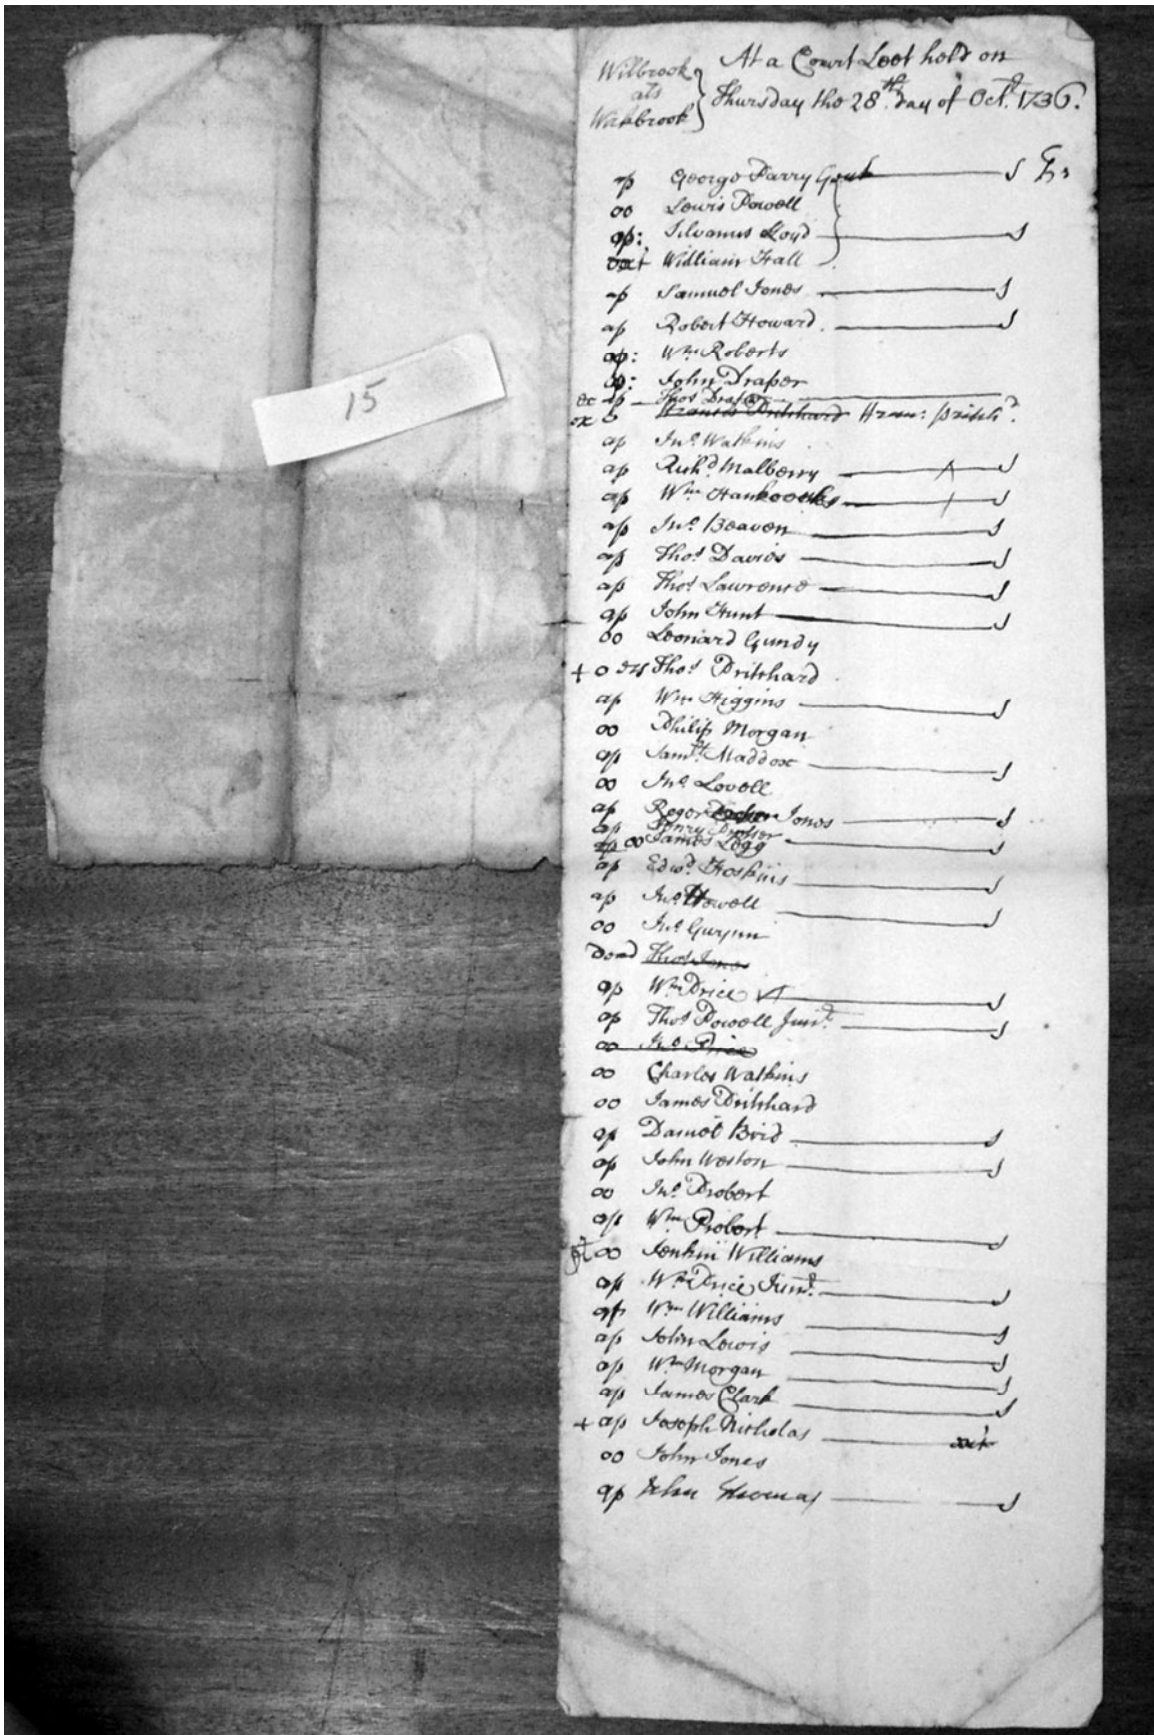 Wilbrook
als
Walbrook
At a Court Leet held on
Thursday the 28th day of Octr. 1736.
15
ap George Parry Gent J
oo Lewis Powell
ap: Silvanus Lloyd J
William Hall
ap Samuel Jones J
ap Robert Howard. J
ap: Wm Roberts
ap: John Draper
ex ap Thos Draper
ex Francis Pritchard Fran: pritchd.
ap Jno. Watkins
ap Richd. Malberry J
ap Wm Hankocks J
ap Jno. Beaven J
ap Thos Davies J
ap Thos Lawrence J
ap John Hunt J
oo Leonard Gundy
+ o Thos Pritchard
ap Wm Higgins J
oo Philip Morgan
ap Samll. Maddox J
oo Jno. Lovell
ap Roger Jones J
ap Henry Prosser J
ap oo James Legg
ap Edwd. Hoskins J
ap Jno. Howell J
oo Jno. Gwynn
dead Thos Jones
ap Wm Price J
ap Thos Powell Junr. J
oo Jno Price
oo Charles Watkins
oo James Pritchard
ap Daniel Bird J
ap John Weston J
oo Jno. Probert
ap Wm Probert J
oo Jenkin Williams
ap Wm Price Junr. J
ap Wm Williams J
ap John Lewis J
ap Wm Morgan J
ap James Clark J
+ ap Joseph Nicholas
oo John Jones
ap John Thomas J